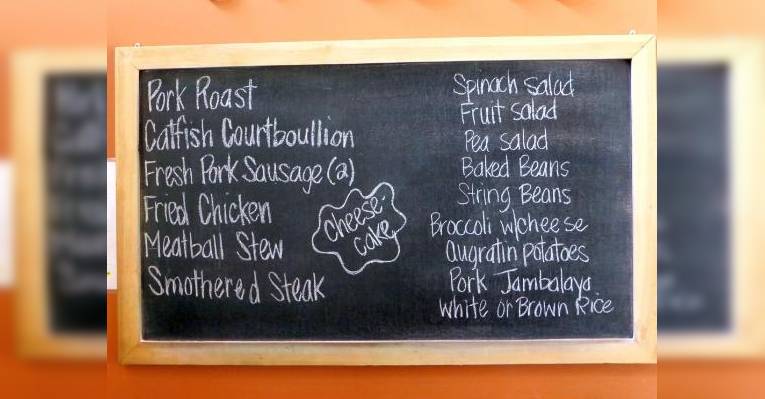 Pork Roast
Catfish Courtboullion
Fresh Pork Sausage (2)
Fried Chicken
Meatball Stew
Smothered Steak
Cheese-
cake
Spinach salad
Fruit salad
Pea salad
Baked Beans
String Beans
Broccoli w/cheese
augratin potatoes
Pork Jambalaya
white or Brown Rice